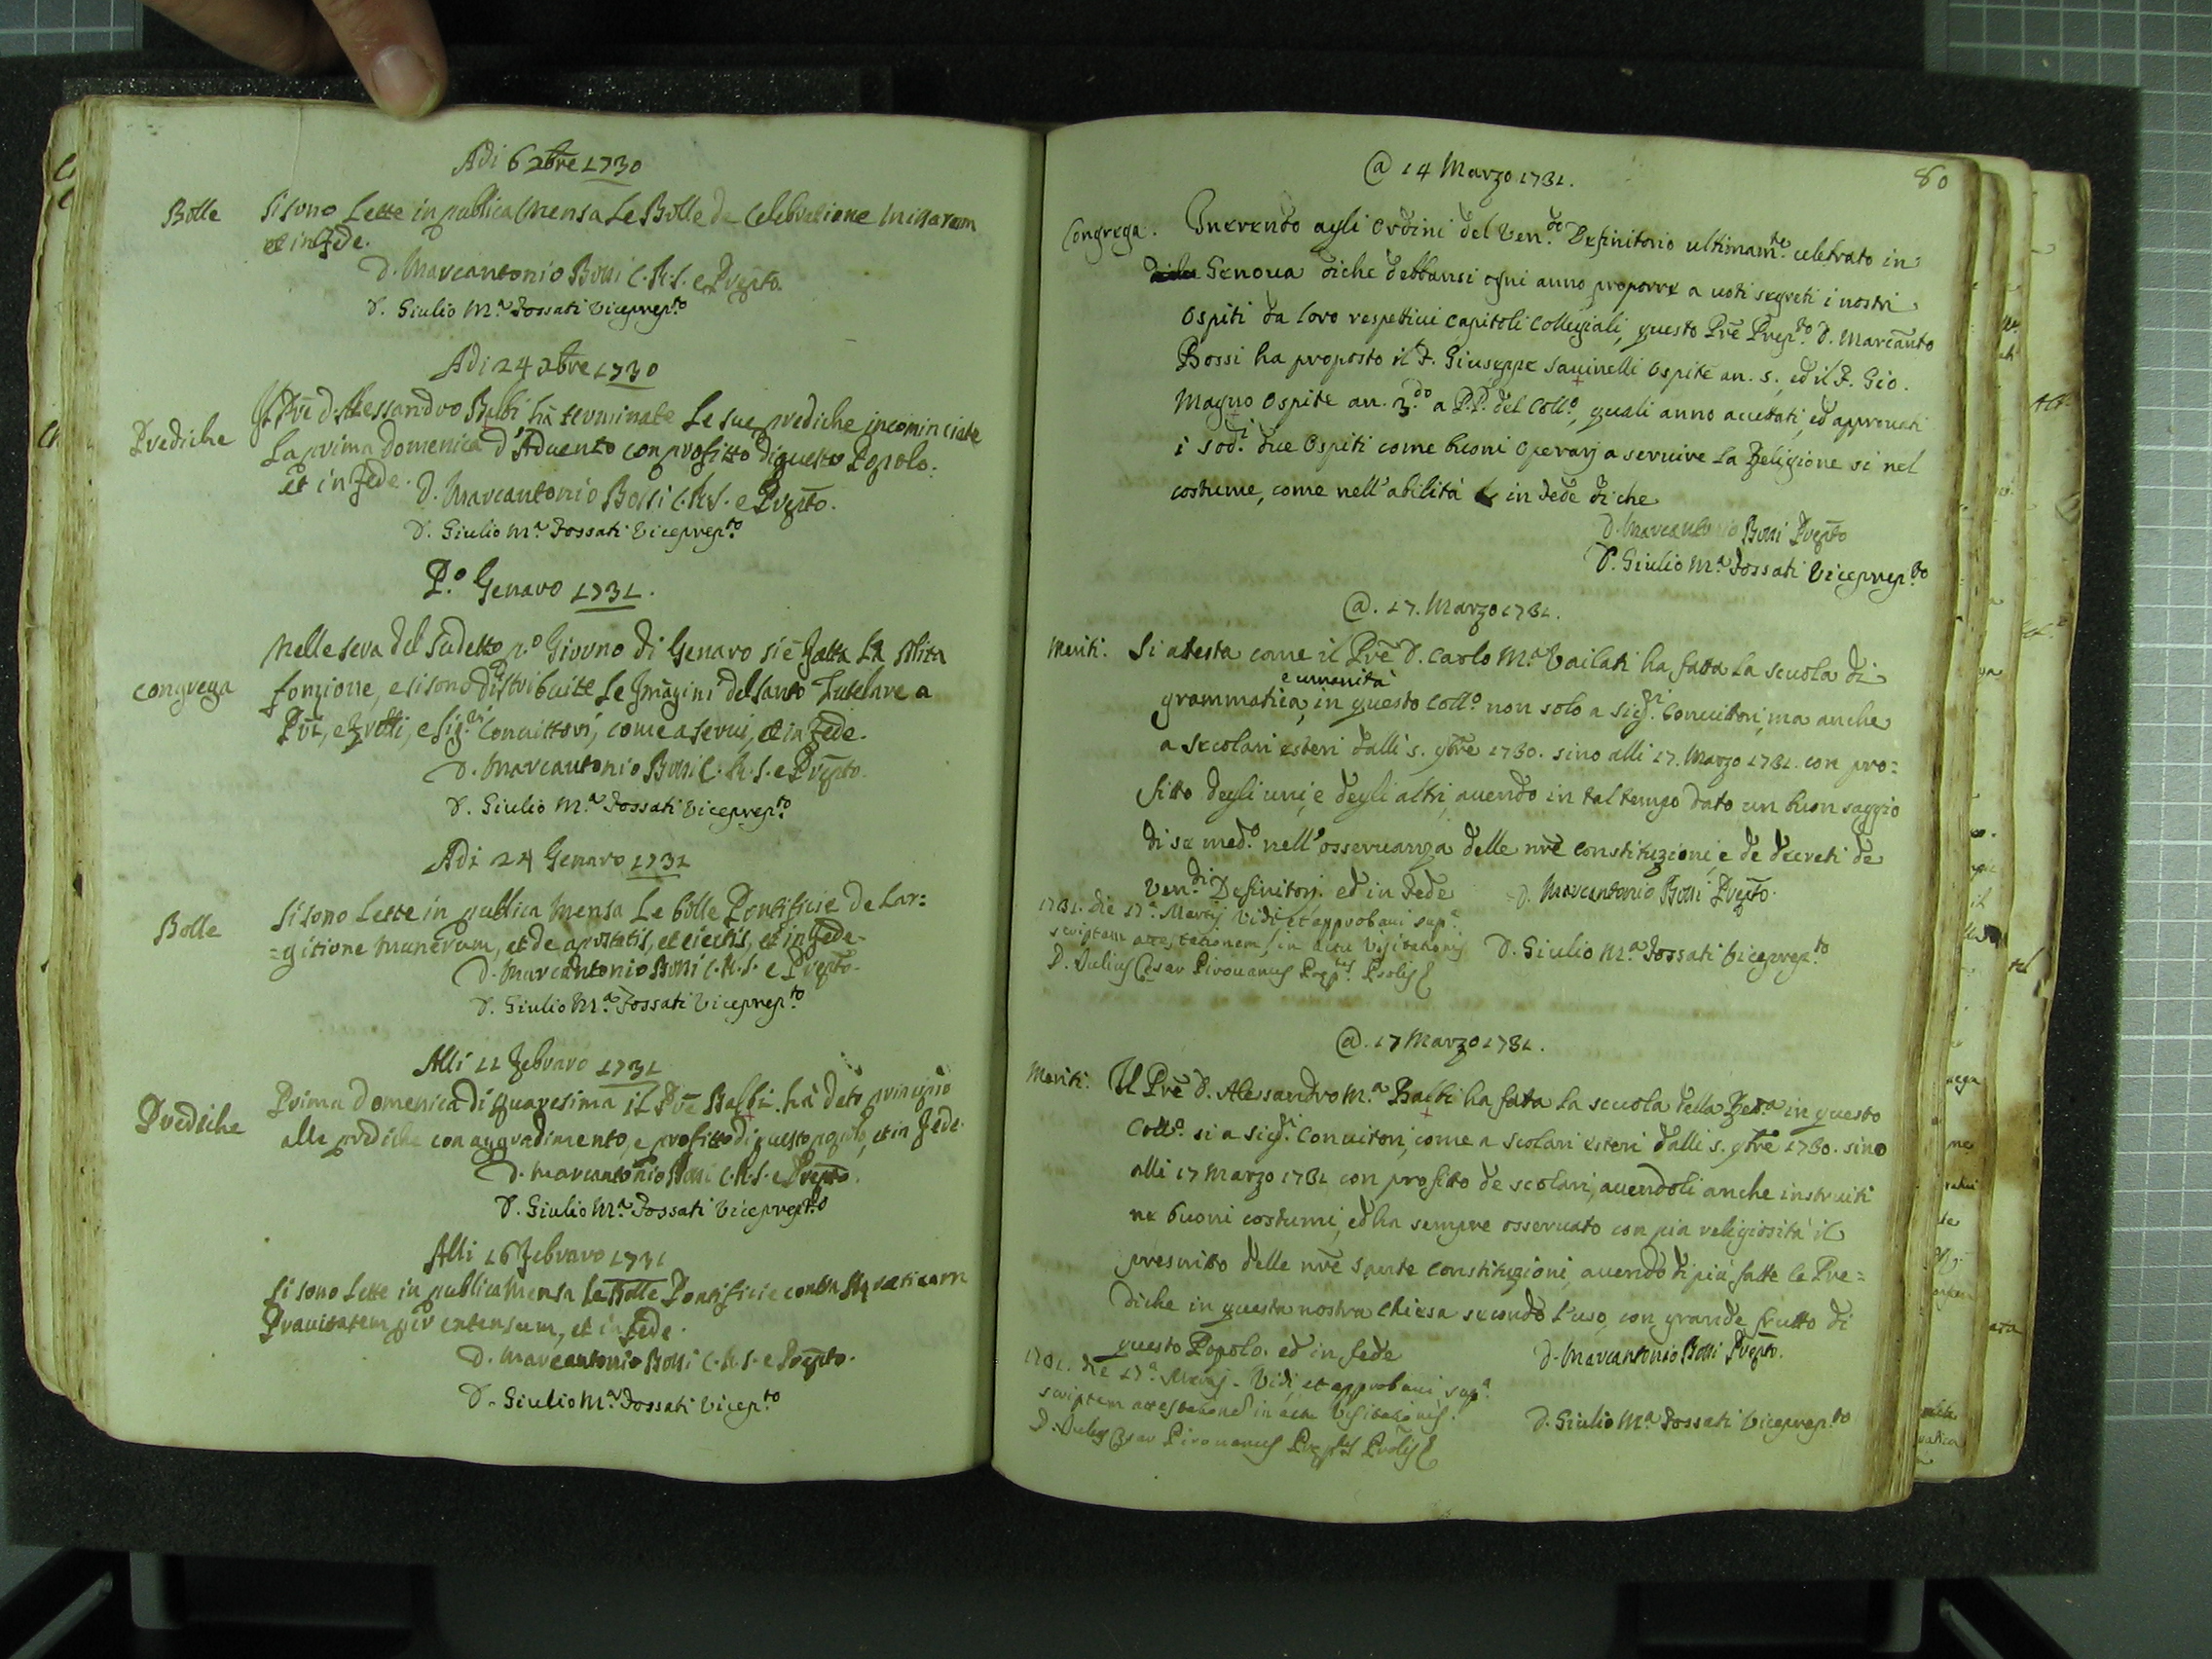 Adi 6 Xbre 1730
Bolle
Si sono Lette in publica Mensa Le Bolle de Celebratione Missarum
et in Fede.
D. Marcantonio Rossi C.R.S. e Prepto.
D. Giulio M.a Fossati Viceprep.to
Adi 24 Xbre 1730
Prediche
Il Pre D. Alessandro Balbi hà terminate Le sue prediche incominciate
La prima Domenica d'Advento con profitto di questo Popolo.
et in Fede. D. Marcantonio Rossi C.R.S. e Prepto.
D. Giulio M.a Fossati Viceprep.to
P.o Genaro 1731.
Congrega
Nella sera del Sudetto p.o Giorno di Genaro si è fatta La solita
fonzione, e si sono distribuitte Le Imagini del santo Tutelare a
Pri, e Frelli, e Sig.ri Convittori, come a servi, et in Fede.
D. Marcantonio Rossi C.R.S. e Prepto.
D. Giulio M.a Fossati Viceprep.to
Adi 24 Genaro 1731
Bolle
Si sono Lette in publica Mensa Le bolle Pontificie de Lar=
=gitione Munerum, et de apostatis, et eiectis, et in Fede.
D. Marcantonio Rossi C.R.S. e Prepto.
D. Giulio M.a Fossati Viceprep.to
Alli 11 Febraro 1731
Prediche
Prima Domenica di quaresima il Pre Balbi hà dato principio
alle prediche con aggradimento, e profitto di questo popolo, et in Fede.
D. Marcantonio Rossi C.R.S. e Prepto.
D. Giulio M.a Fossati Viceprep.to
Alli 16 Febraro 1731
Si sono Lette in publica Mensa Le Bolle Pontificie contra Hæreticam
Pravitatem per extensum, et in Fede.
D. Marcantonio Rossi C.R.S. e Prepto.
D. Giulio M.a Fossati Vicep.to
80
@ 14 Marzo 1731.
Congrega. Inerendo agli Ordini del Ven.do Definitorio ultimam.te celebrato in
Genova diche debbansi ogni anno proporre a voti segreti i nostri
Ospiti da loro respettivi Capitoli Collegiali, questo Pre Prep.to D. Marcanto
Rossi ha proposto il F. Giuseppe Savinelli Ospite an. s., ed il F. Gio.
Magno Ospite an. 3.do a P.P. del Coll.o, quali anno accettati, ed approvati
i sod.i due Ospiti come buoni Operarj a servire la Religione si nel
costume, come nell'abilità in Fede di che
D. Marcantonio Rossi Prepto
D. Giulio M.a Fossati Viceprep.to
@. 17. Marzo 1731.
Meriti. Si attesta come il Pre D. Carlo M.a Vailati ha fatta la scuola di
e umanità
grammatica, in questo Coll.o non solo a Sig.ri Convittori, ma anche
a secolari esteri dalli s. 9bre 1730. sino alli 17. Marzo 1731. con pro=
fitto degli uni, e degli altri, avendo in tal tempo dato un buon saggio
di se med.o nell'osservanza delle nre Constituzioni, e de decreti de
Ven.di Definitorj. ed in Fede D. Marcantonio Rossi Prepto.
1731. die 17.a Martij Vidi, et approbavi sup.a
scriptam attestationem in actu Visitationis D. Giulio M.a Fossati Viceprep.to
D. Julius Cæsar Pirovanus Præp.tus Prolis
@. 17 Marzo 1731.
Meriti. Il Pre D. Alessandro M.a Balbi ha fatta la scuola della Ret.a in questo
Coll.o si a Sig.ri Convitori, come a scolari esteri dalli s. 9bre 1730. sino
alli 17 Marzo 1731 con profitto de scolari, avendoli anche instruiti
ne buoni costumi, ed ha sempre osservato con pia religiosità il
prescritto delle nre Sante Constituzioni, avendo di più fatte le Pre=
diche in questa nostra Chiesa secondo l'uso, con grande frutto di
questo Popolo. ed in fede D. Marcantonio Rossi Prepto.
1731. die 17.a Martij. Vidi, et approbavi sup.a
scriptam attestationem in actu Visitationis. D. Giulio M.a Fossati Viceprep.to
D. Julius Cæsar Pirovanus Præp.tus Prolis